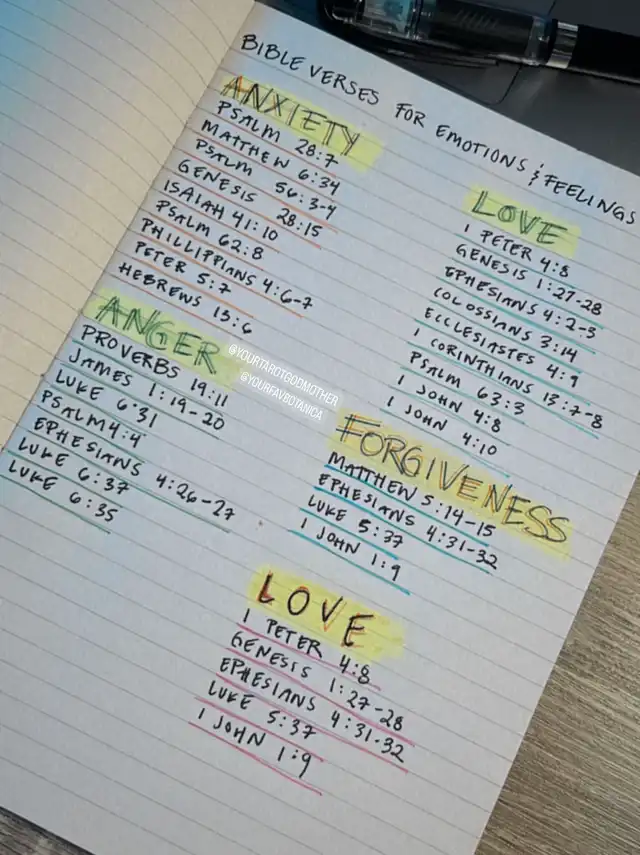 BIBLE VERSES FOR EMOTIONS & FEELINGS
ANXIETY
PSALM 28:7
MATTHEW 6:34
PSALM 56:3-4
GENESIS 28:15
ISAIAH 41:10
PSALM 62:8
PHILLIPPIANS 4:6-7
PETER 5:7
HEBREWS 13:6
ANGER
PROVERBS 19:11
JAMES 1:19-20
LUKE 6:31
PSALM 4:4
EPHESIANS 4:26-27
LUKE 6:37
LUKE 6:35
@YOURTAROTGODMOTHER
@YOURFAVBOTANICA
LOVE
1 PETER 4:8
GENESIS 1:27-28
EPHESIANS 4:2-3
COLOSSIANS 3:14
ECCLESIASTES 4:9
1 CORINTHIANS 13:7-8
PSALM 63:3
1 JOHN 4:8
1 JOHN 4:10
FORGIVENESS
MATTHEW 5:14-15
EPHESIANS 4:31-32
LUKE 5:37
1 JOHN 1:9
LOVE
1 PETER 4:8
GENESIS 1:27-28
EPHESIANS 4:31-32
LUKE 5:37
1 JOHN 1:9